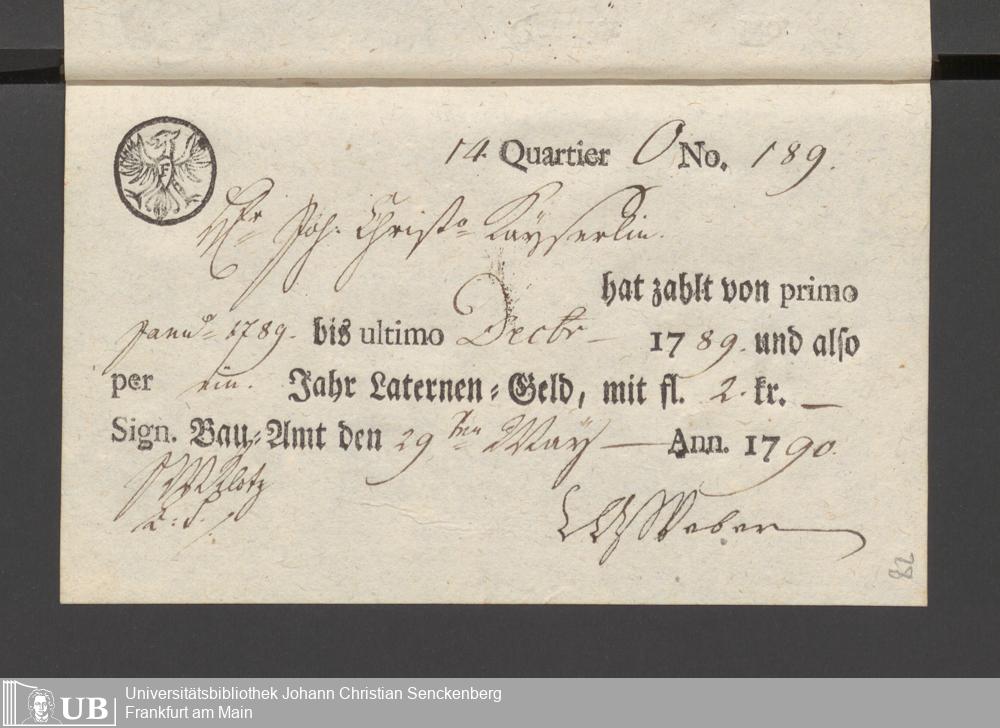 14 Quartier O No. 189.
Joh: Christo Käyserlin.
hat zahlt von primo
Janu: 1789. bis ultimo Decbr 1789. und also
per ein. Jahr Laternen-Geld, mit fl. 2. kr. —
Sign. Bau-Amt den 29ten Maÿ — Ann. 1790.
Weber
82
UB
Universitätsbibliothek Johann Christian Senckenberg
Frankfurt am Main